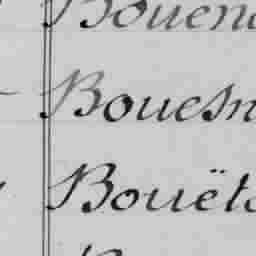 Bouen
Bouesn
Bouët